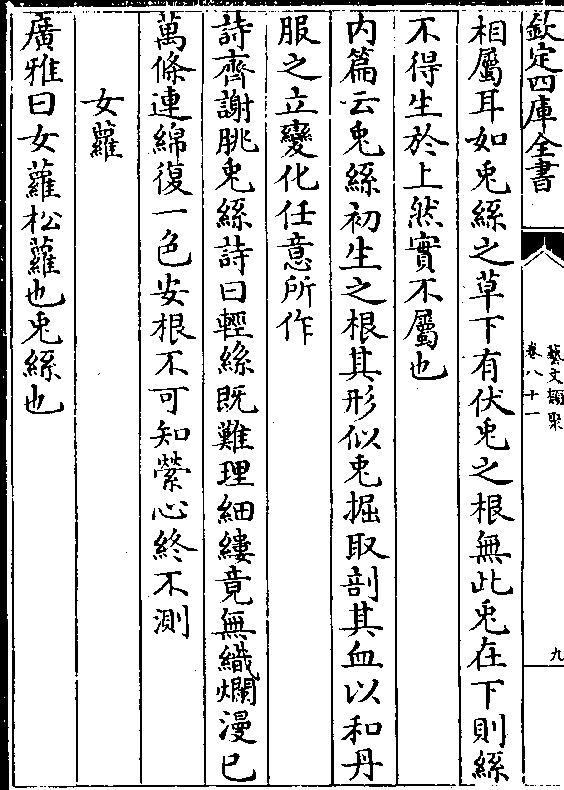 欽定四庫全書
藝文類聚
卷八十一
九
相屬耳如兎絲之草下有伏兎之根無此兎在下則絲
不得生於上然實不屬也
内篇云兎絲初生之根其形似兎掘取剖其血以和丹
服之立變化任意所作
詩齊謝朓兎絲詩曰輕絲既難理細縷竟無織爛漫已
萬條連綿復一色安根不可知縈心終不測
女蘿
廣雅曰女蘿松蘿也兎絲也